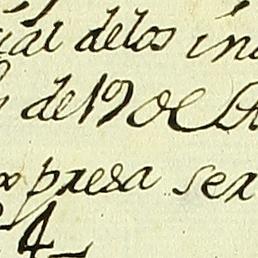 ial delos in
de 19 de
presa sex
4